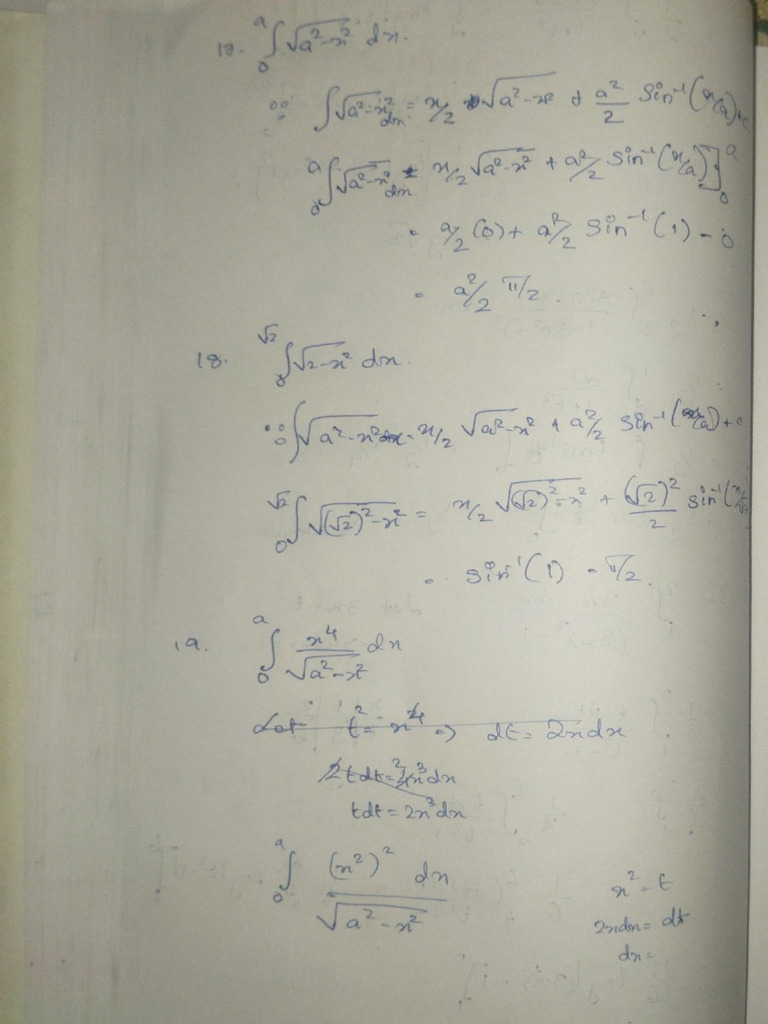 18. ₀∫ᵃ √a²-x² dx.
∵ ∫√a²-x² dx = x/2 √a²-x² + a²/2 Sin⁻¹(x/a)+c
₀∫ᵃ √a²-x² dx = x/2 √a²-x² + a²/2 Sin⁻¹(x/a)]₀ᵃ
= a/2 (0) + a²/2 Sin⁻¹(1) - 0
= a²/2 π/2.
18. ₀∫^√2 √2-x² dx.
∵ ∫√a²-x² dx = x/2 √a²-x² + a²/2 Sin⁻¹(x/a)+c
₀∫^√2 √(√2)²-x² = x/2 √(√2)²-x² + (√2)²/2 sin⁻¹(x/√2
= sin⁻¹(1) = π/2.
19. ₀∫ᵃ x⁴/√a²-x² dx
Let t² = x⁴ => dt = 2xdx
2tdt = 4x³dx
tdt = 2x³dx
₀∫ᵃ (x²)² dx/√a²-x²
x² = t
2xdx = dt
dx =